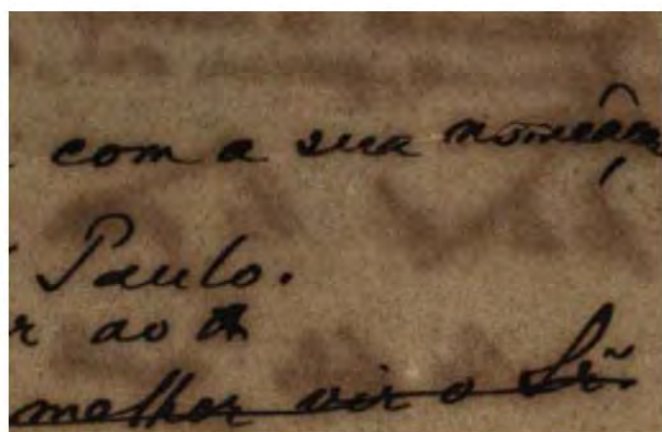 com a sua nomeação
Paulo.
r ao
melhor vir o Sr.